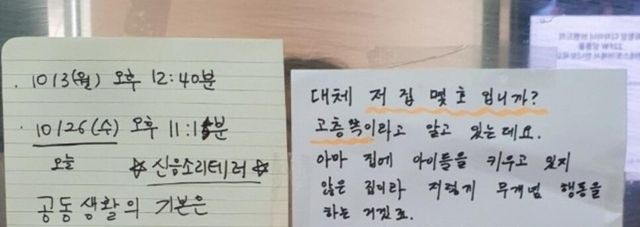 . 10/3(월) 오후 12:40분
. 10/26(수) 오후 11:15분
오늘 ☆신음소리테러☆
공동생활의 기본은
대체 저 집 몇호 입니까?
고층쪽이라고 알고 있는데요.
아마 집에 아이들을 키우고 있지
않은 집이라 저렇게 무개념 행동을
하는 거겠죠.